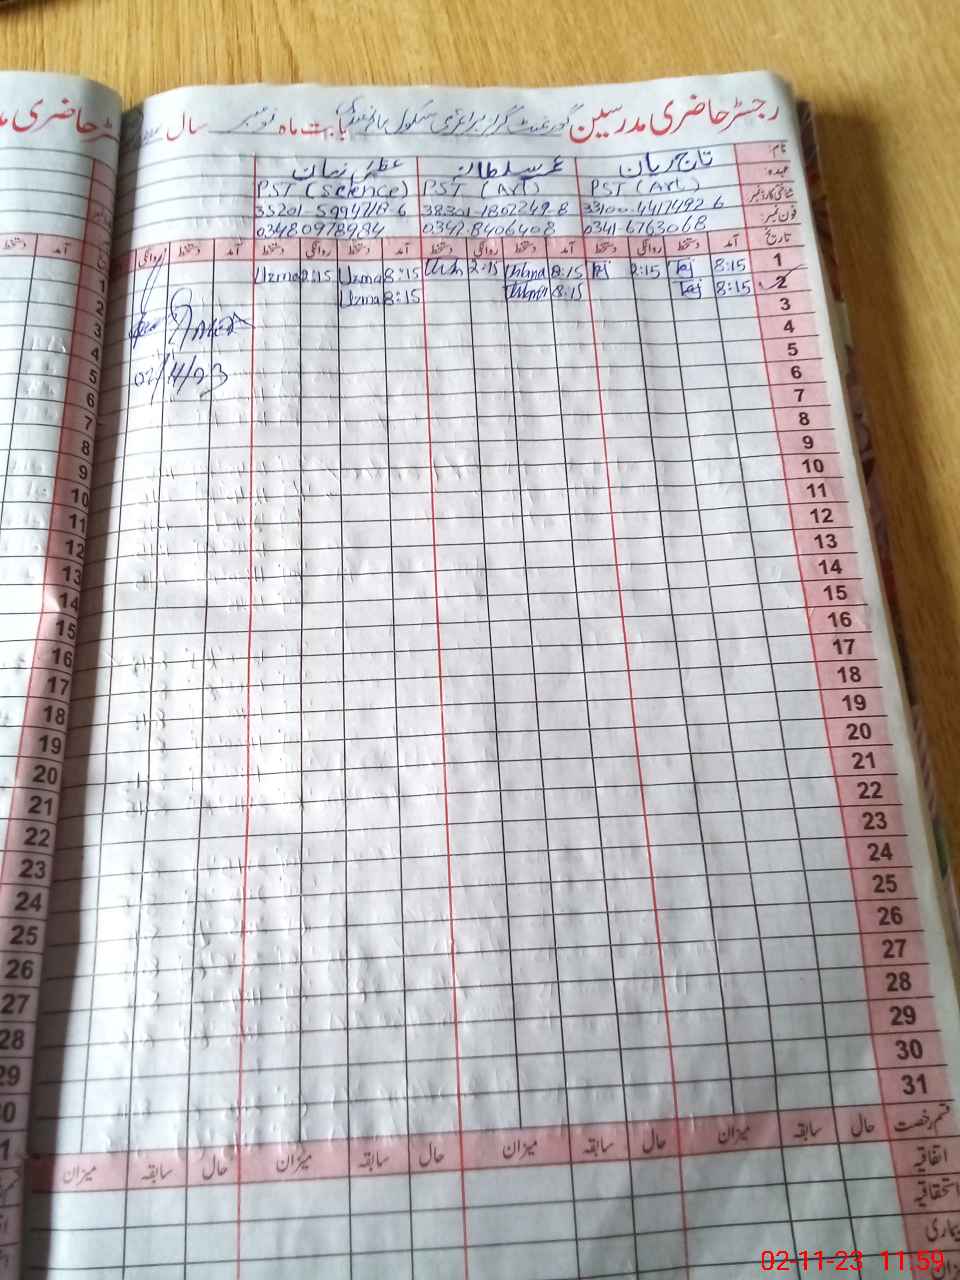 رجسٹر حاضری مدرسین گورنمنٹ گرلز پرائمری سکول بابت ماہ نومبر سال
نام
عہدہ
شناختی کارڈ نمبر
فون نمبر
تاج ریان سلطانہ عظمیٰ زمان
PST (Art) PST (Art) PST (Science)
33100-4417492 6 38301-1802249-8
0341-6763068 0342-8406408 03480978934
تاریخ آمد دستخط روانگی دستخط آمد دستخط روانگی دستخط آمد دستخط روانگی دستخط آمد دستخط روانگی
1 8:15 Taj 2:15 Taj 8:15 2:15 8:15 Uzma 2:15 Uzma
2 8:15 Taj 8:15 8:15 Uzma
3
4
5
6
7
8
9
10
11
12
13
14
15
16
17
18
19
20
21
22
23
24
25
26
27
28
29
30
31
قسم رخصت حال سابقہ میزان حال سابقہ میزان حال سابقہ میزان حال سابقہ میزان
اتفاقیہ
استحقاقیہ
بیماری
رجسٹر حاضری
1
2
3
4
5
6
7
8
9
10
11
12
13
14
15
16
17
18
19
20
21
22
23
24
25
26
27
28
29
30
02-11-23 11:59